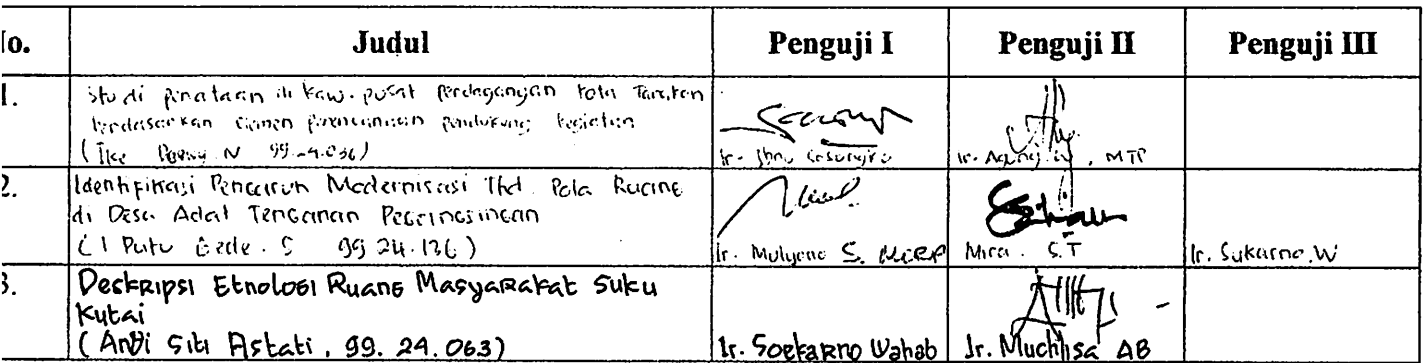 No. Judul Penguji I Penguji II Penguji III
1. Studi penataan di kaw. pusat perdagangan kota Tarakan
berdasarkan elemen perencanaan pendukung kegiatan
(Ike N 99.24.036)
Ir. Ibnu Sasongko Ir. Agung W, MTP
2. Identifikasi Pengaruh Modernisasi Thd. Pola Ruang
di Desa Adat Tenganan Pegringsingan
(I Putu Gede. S 99.24.136)
Ir. Mulyono S. MCRP Mira. S.T Ir. Sukarno.W
3. Deskripsi Etnologi Ruang Masyarakat Suku
Kutai
(Andi Siti Astati, 99.24.063)
Ir. Soekarno Wahab Ir. Muchlisa AB